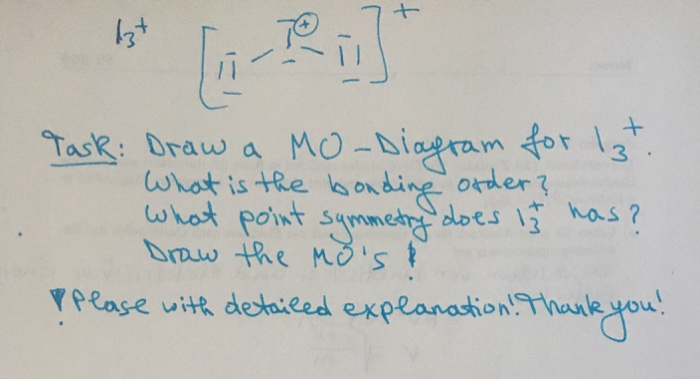 I₃⁺ [I I⊕ I]⁺
Task: Draw a MO-Diagram for I₃⁺.
What is the bonding order?
What point symmetry does I₃⁺ has?
Draw the MO's !
! Please with detailed explanation! Thank you!